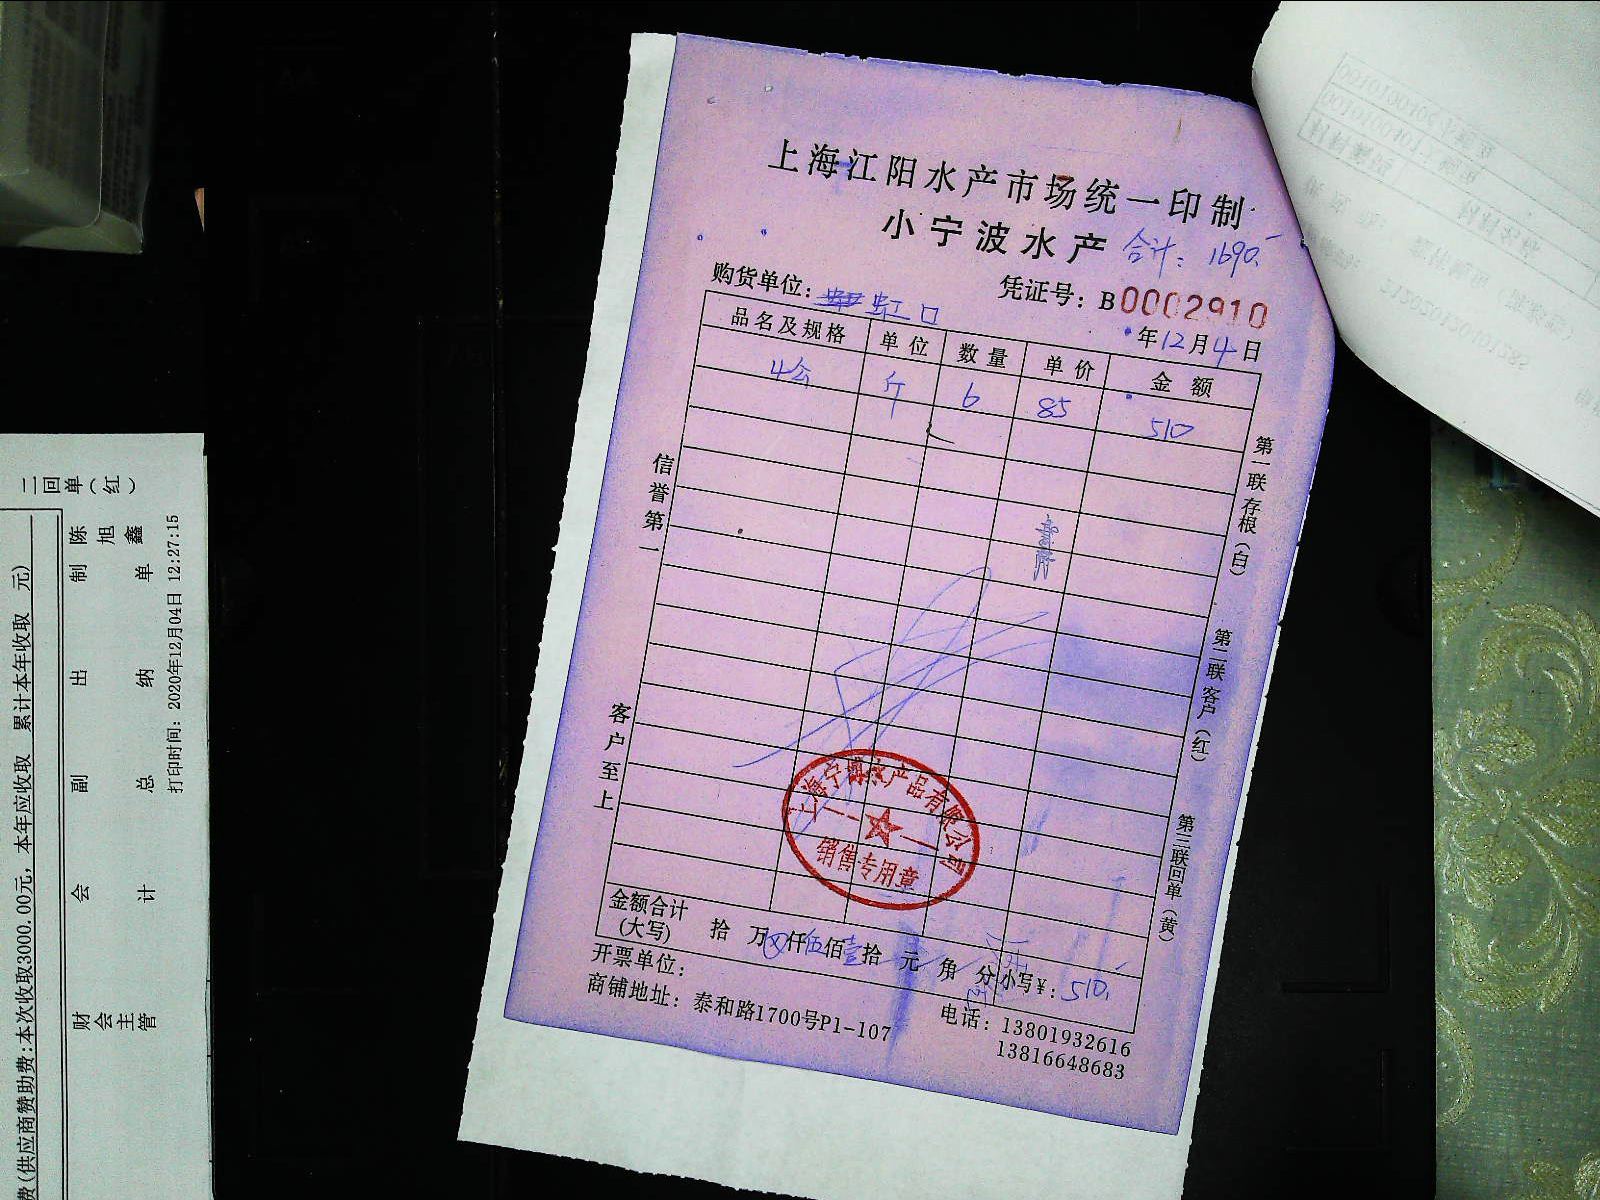 上海江阳水产市场统一印制
小宁波水产 合计: 1690.-
购货单位: 虹口 凭证号: B0002910
年12月4日
品名及规格 单位 数量 单价 金额
4公 斤 6 85 510
信誉第一
客户至上
第一联存根(白)
第二联客户(红)
第三联回单(黄)
上海宁波水产品有限公司
销售专用章
金额合计(大写) 拾 万 仟伍佰壹拾 元 角 分 小写¥: 510.
开票单位:
商铺地址: 泰和路1700号P1-107 电话: 13801932616
13816648683
二回单(红)
费(供应商赞助费:本次收取3000.00元, 本年应收取 元, 累计本年收取 元)
财会主管 会计 副总 出纳 制单 陈旭鑫
打印时间: 2020年12月04日 12:27:15